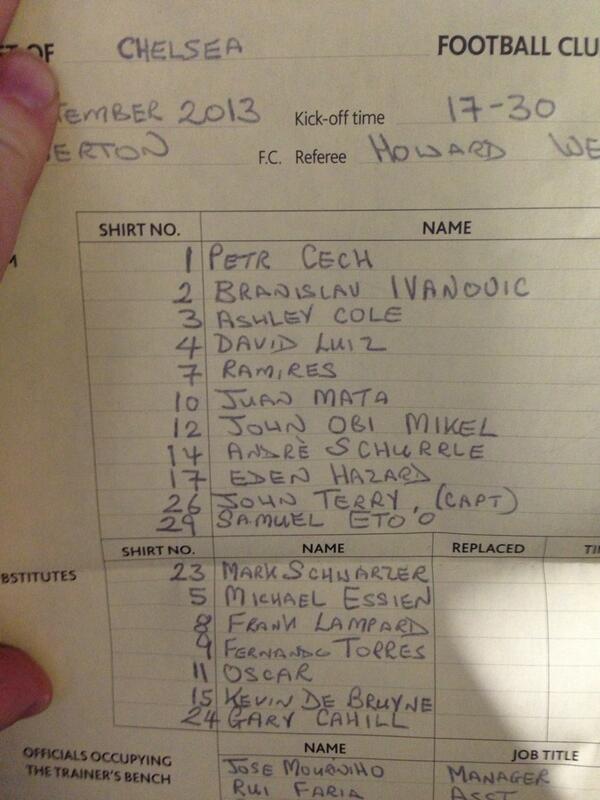 OF CHELSEA FOOTBALL CLU
TEMBER 2013 Kick-off time 17-30
ERTON F.C. Referee HOWARD WE
SHIRT NO. NAME
M
1 PETR CECH
2 BRANISLAV IVANOVIC
3 ASHLEY COLE
4 DAVID LUIZ
7 RAMIRES
10 JUAN MATA
12 JOHN OBI MIKEL
14 ANDRÈ SCHURRLE
17 EDEN HAZARD
26 JOHN TERRY, (CAPT)
29 SAMUEL ETO'O
SHIRT NO. NAME REPLACED TI
BSTITUTES
23 MARK SCHWARZER
5 MICHAEL ESSIEN
8 FRANK LAMPARD
9 FERNANDO TORRES
11 OSCAR
15 KEVIN DE BRUYNE
24 GARY CAHILL
OFFICIALS OCCUPYING THE TRAINER'S BENCH
NAME JOB TITLE
JOSE MOURINHO MANAGER
RUI FARIA ASST